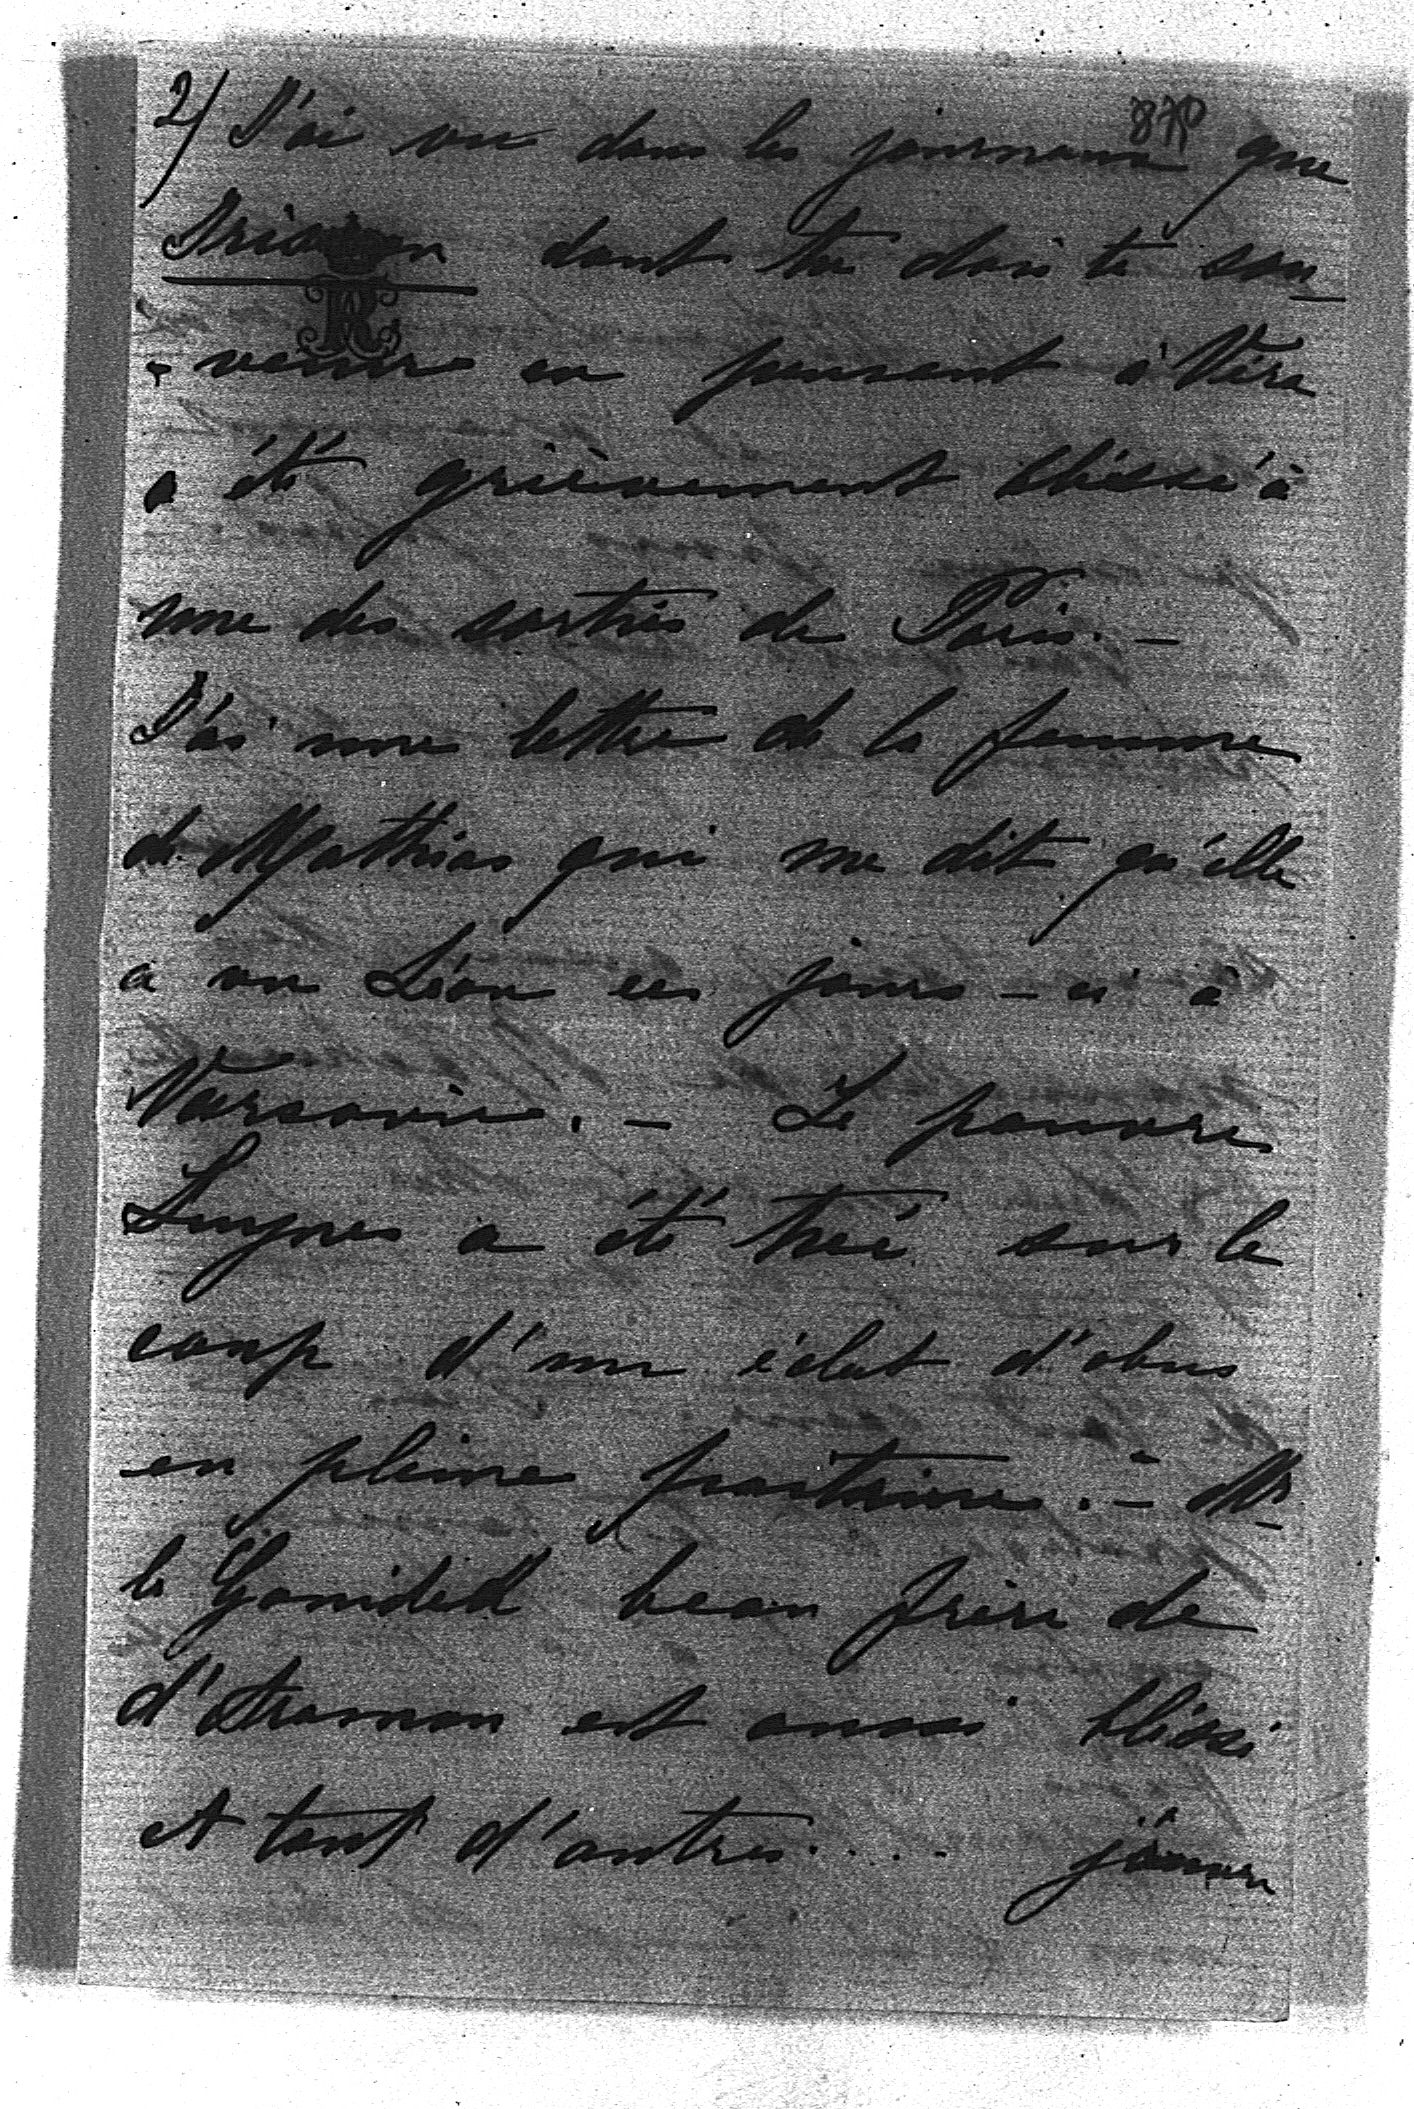 2) J'ai vu dans les journaux que
dont tu dois te sou
- venir en pensant à Véra
a été grièvement blessé à
une des sorties de Paris. —
J'ai une lettre de la femme
de Mathias qui me dit qu'elle
a vu Léon ces jours-ci à
Varsovie. — Le pauvre
Luynes a été tué sur le
coup d'un éclat d'obus
en pleine poitrine. — Mr
le Gonidec beau frère de
d'Aramon est aussi blessé
et tant d'autres....